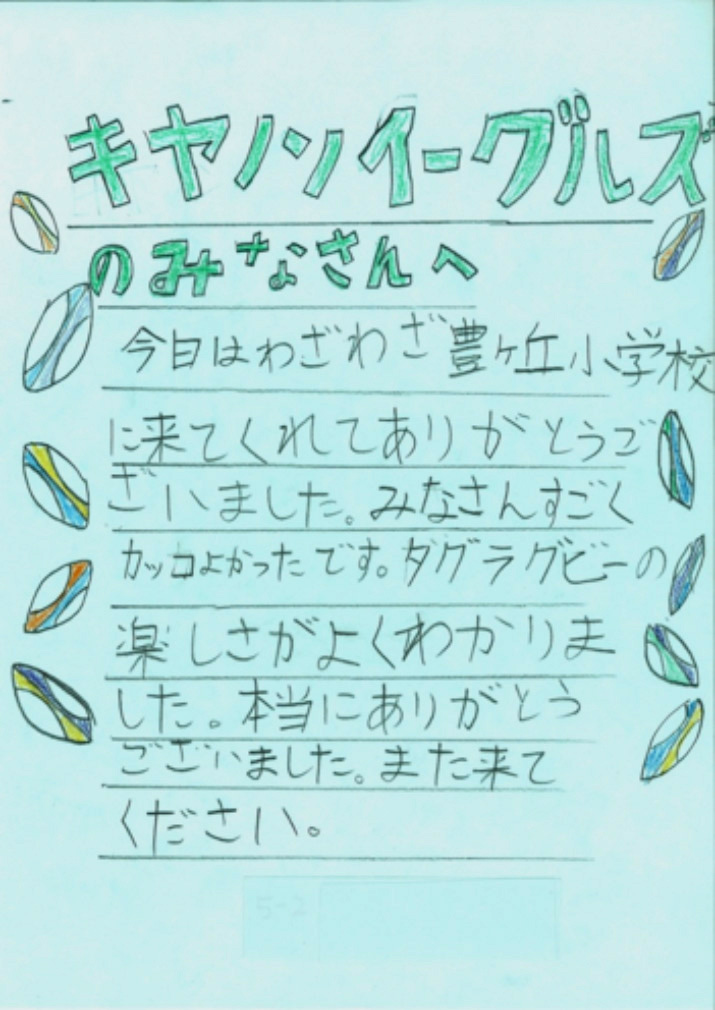 キヤノンイーグルズ
のみなさんへ
今日はわざわざ豊ヶ丘小学校
に来てくれてありがとうご
ざいました。みなさんすごく
カッコよかったです。タグラグビーの
楽しさがよくわかりま
した。本当にありがとう
ございました。また来て
ください。
5-2